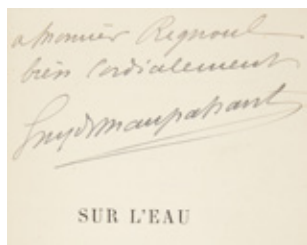 a monsieur Regnoul
bien cordialement
Guy de Maupassant
SUR L'EAU